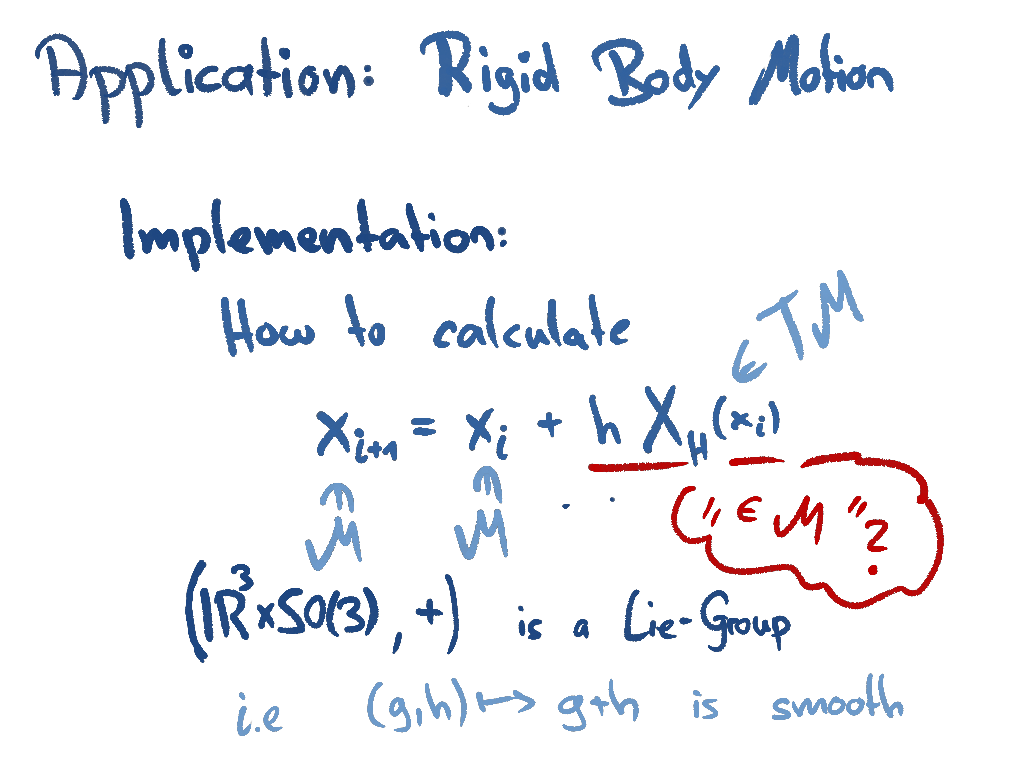 Application: Rigid Body Motion
Implementation:
How to calculate
∈ TM
x_{i+1} = x_i + h X_H(x_i)
∈ M ∈ M
("∈ M"?
(ℝ³×SO(3), +) is a Lie-Group
i.e (g,h) ↦ g+h is smooth